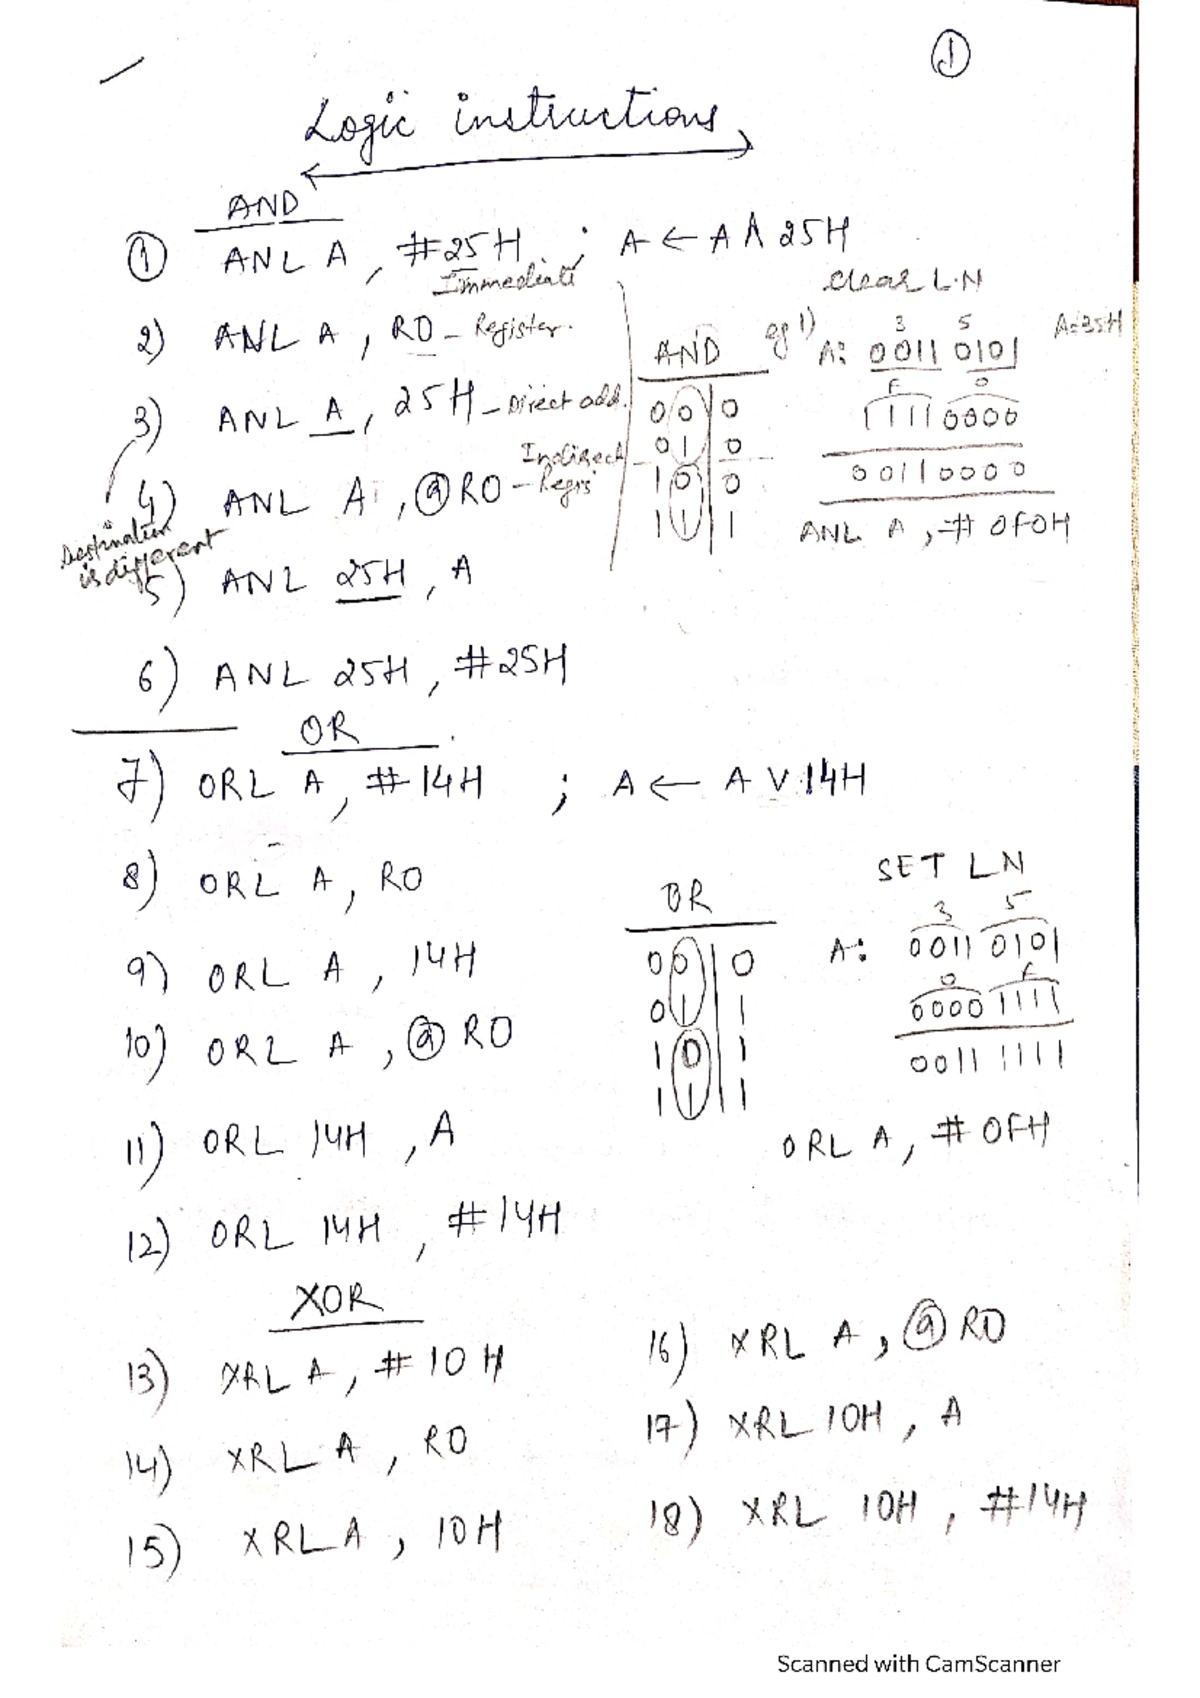 ①
Logic instructions
AND
① ANL A, #25H ; A ← A ∧ 25H
Immediate
2) ANL A, R0 - Register.
3) ANL A, 25H - Direct add.
4) ANL A, @R0 - Indirect Regrs
Destination is different
5) ANL 25H, A
6) ANL 25H, #25H
AND
0 0 | 0
0 1 | 0
1 0 | 0
1 1 | 1
Clear L.N
eg 1) A=35H
3 5
A: 0011 0101
F 0
1111 0000
0011 0000
ANL A, # 0F0H
OR
7) ORL A, #14H ; A ← A ∨ 14H
8) ORL A, R0
9) ORL A, 14H
10) ORL A, @R0
11) ORL 14H, A
12) ORL 14H, #14H
OR
0 0 | 0
0 1 | 1
1 0 | 1
1 1 | 1
SET LN
3 5
A: 0011 0101
0 F
0000 1111
0011 1111
ORL A, # 0FH
XOR
13) XRL A, #10H
14) XRL A, R0
15) XRL A, 10H
16) XRL A, @R0
17) XRL 10H, A
18) XRL 10H, #14H
Scanned with CamScanner